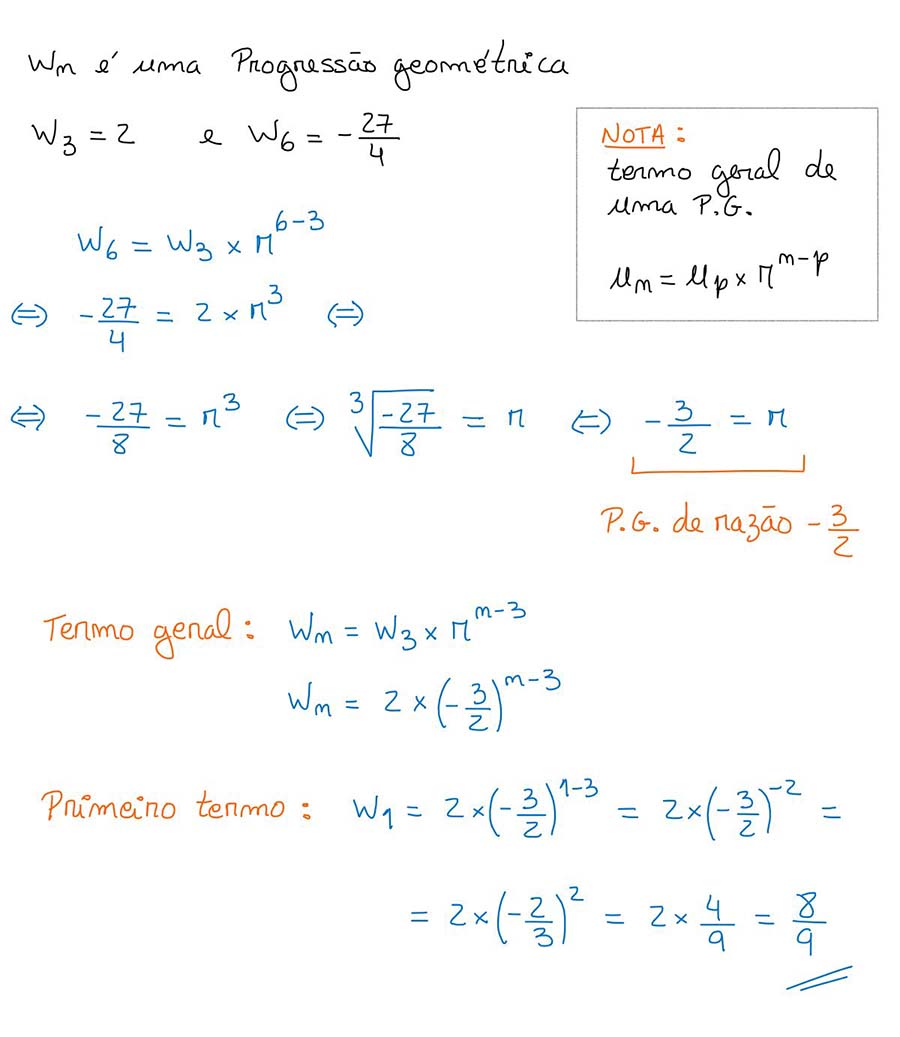 Wn é uma Progressão geométrica
W₃ = 2 e W₆ = -27/4
NOTA:
termo geral de
uma P.G.
uₙ = uₚ × rⁿ⁻ᵖ
W₆ = W₃ × r⁶⁻³
⇔ -27/4 = 2 × r³ ⇔
⇔ -27/8 = r³ ⇔ ∛(-27/8) = r ⇔ -3/2 = r
P.G. de razão -3/2
Termo geral: Wₙ = W₃ × rⁿ⁻³
Wₙ = 2 × (-3/2)ⁿ⁻³
Primeiro termo: W₁ = 2 × (-3/2)¹⁻³ = 2 × (-3/2)⁻² =
= 2 × (-2/3)² = 2 × 4/9 = 8/9